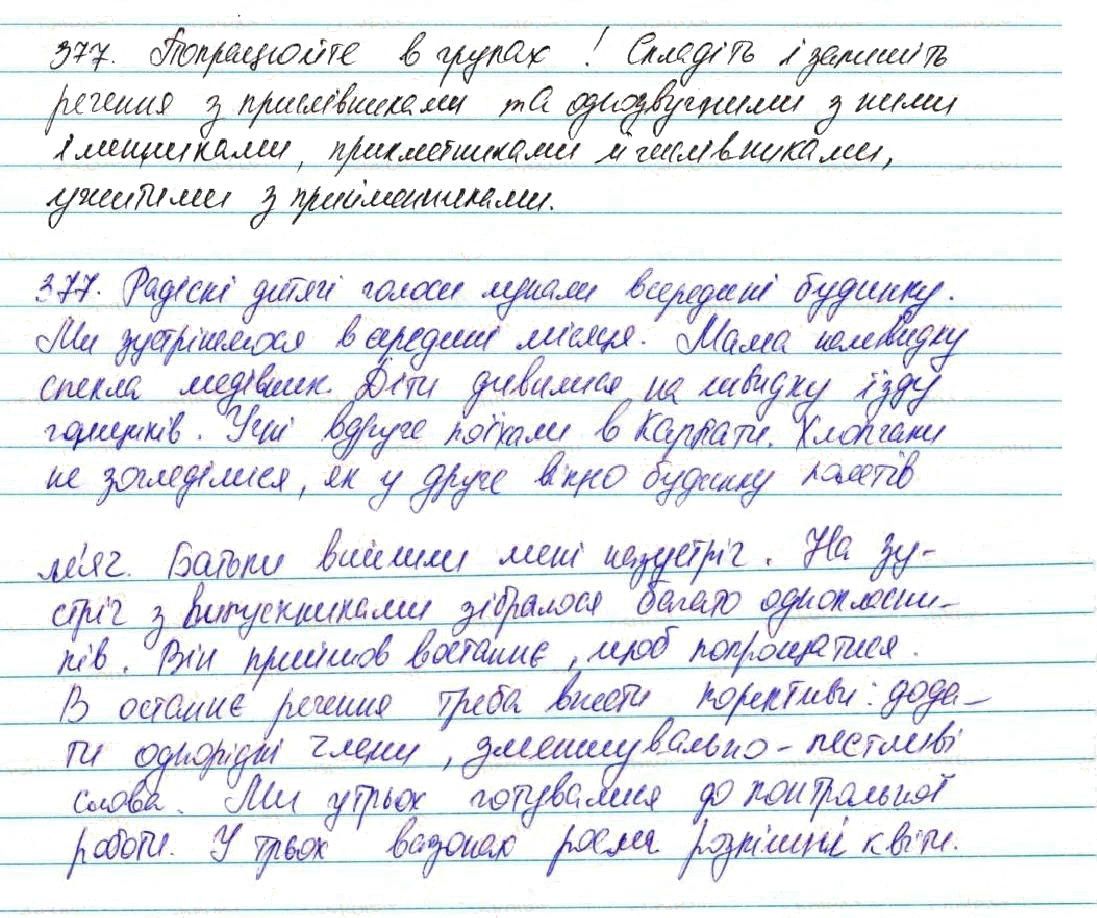 377. Попрацюйте в групах! Складіть і запишіть
речення з прислівниками та однозвучними з ними
іменниками, прикметниками й числівниками,
ужитими з прийменниками.
377. Радісні дитячі голоси лунали всередині будинку.
Ми зустрінемося в середині місяця. Мама нашвидку
спекла медівник. Діти дивилися на швидку їзду
гонщиків. Учні вдруге поїхали в Карпати. Хлопчаки
не зогледілися, як у друге вікно будинку полетів
м'яч. Батьки вийшли мені назустріч. На зу-
стріч з випускниками зібралося багато однокласни-
ків. Він прийшов востаннє, щоб попрощатися.
В останнє речення треба внести корективи: дода-
ти однорідні члени, зменшувально-пестливі
слова. Ми утрьох готувалися до контрольної
роботи. У трьох вазонах росли розкішні квіти.